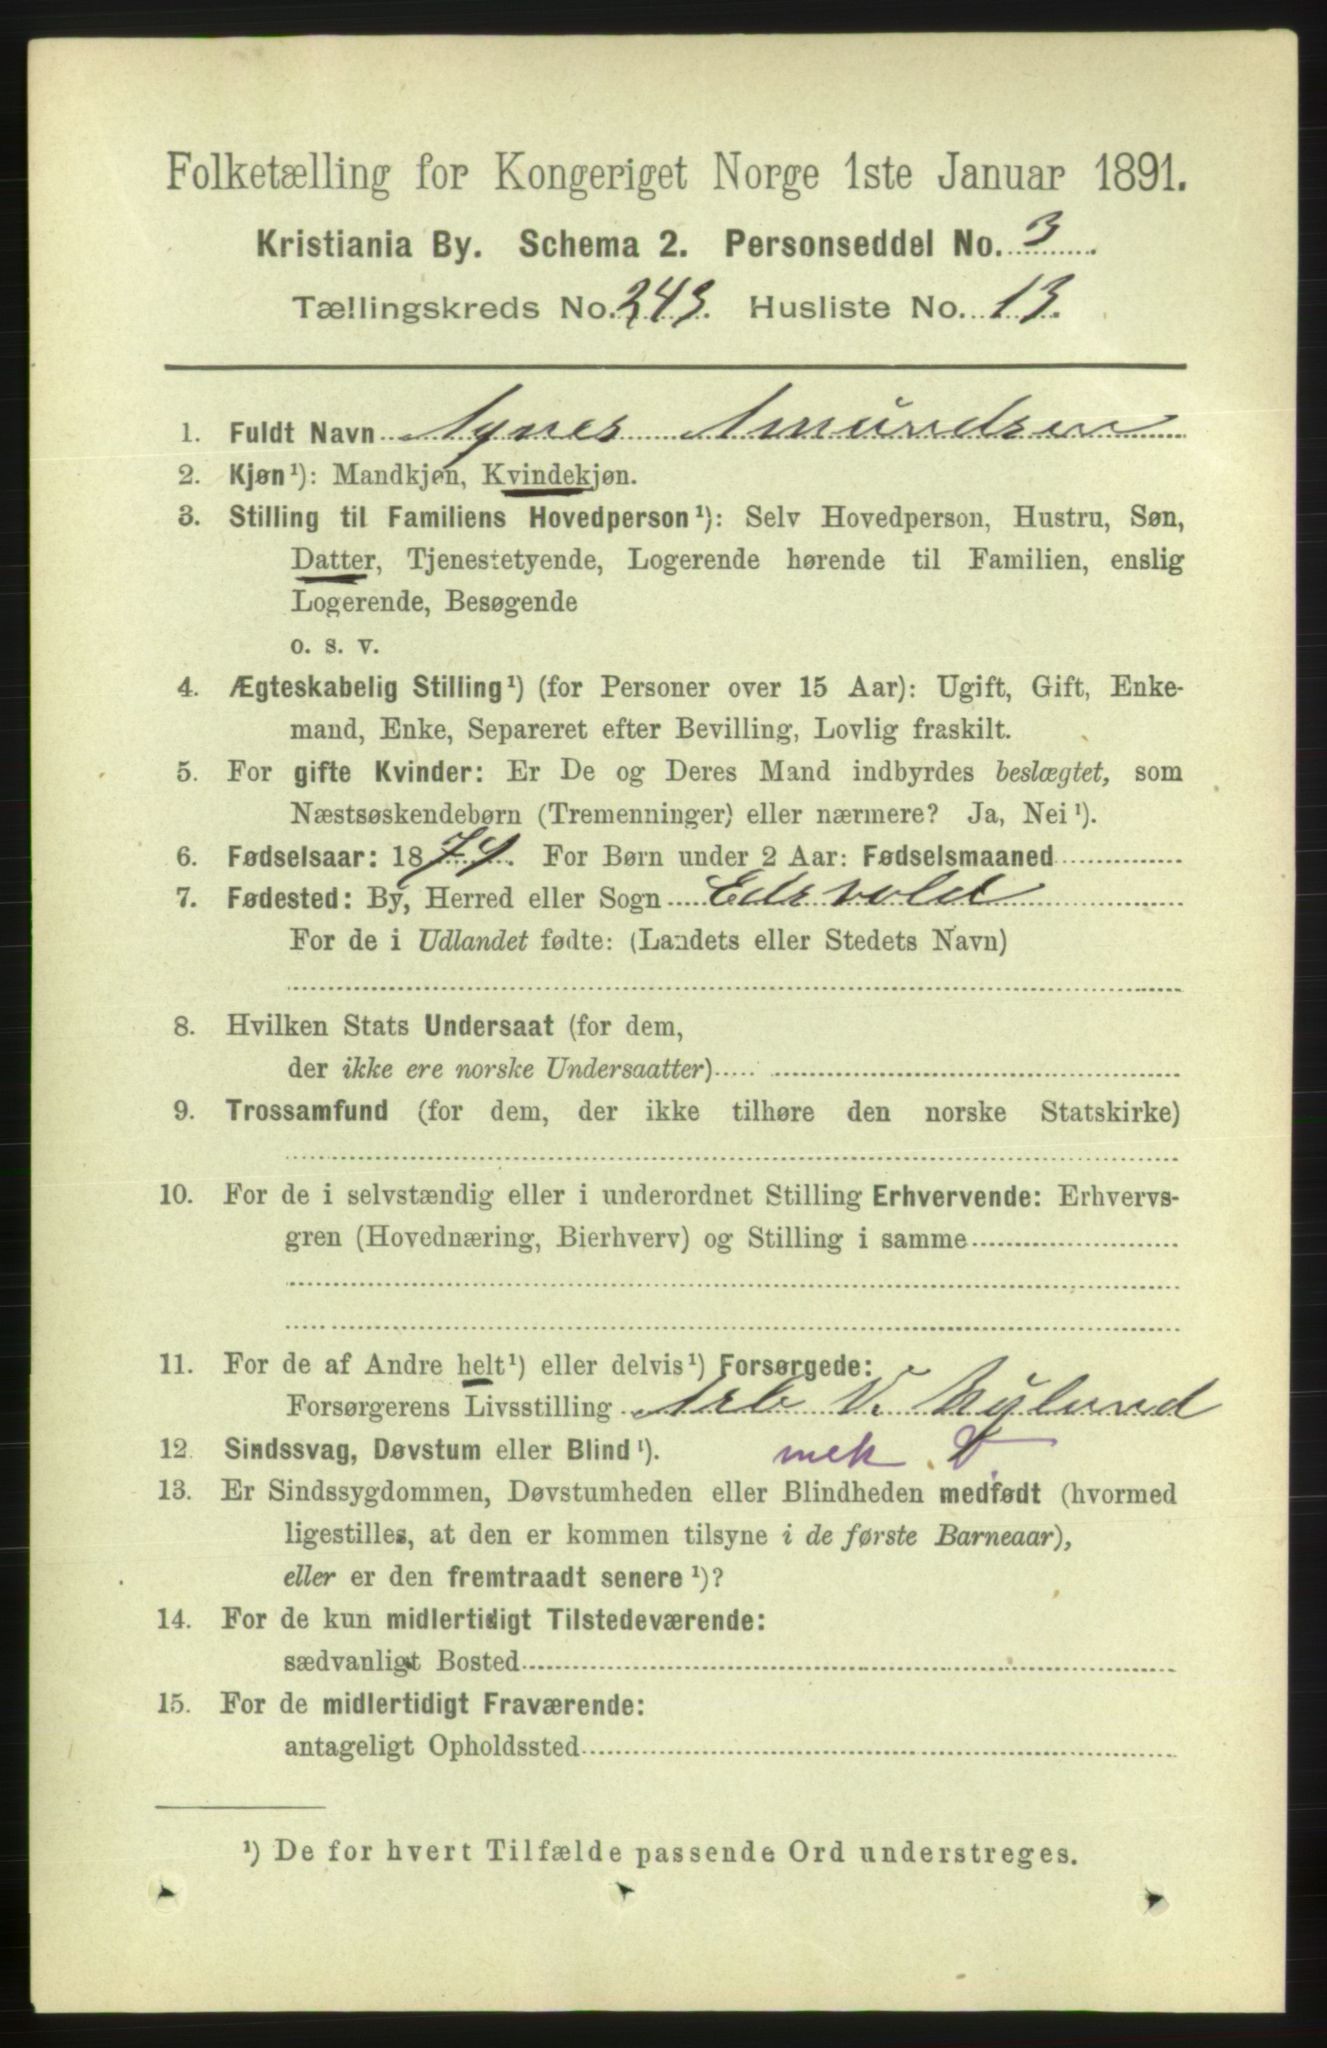 Folketælling for Kongeriget Norge 1ste Januar 1891.
Kristiania By. Schema 2. Personseddel No. 3
Tællingskreds No. 243. Husliste No. 13.
1. Fuldt Navn Agnes Amundsen
2. Kjøn¹): Mandkjøn, Kvindekjøn.
3. Stilling til Familiens Hovedperson¹): Selv Hovedperson, Hustru, Søn,
Datter, Tjenestetyende, Logerende hørende til Familien, enslig
Logerende, Besøgende
o. s. v.
4. Ægteskabelig Stilling¹) (for Personer over 15 Aar): Ugift, Gift, Enke-
mand, Enke, Separeret efter Bevilling, Lovlig fraskilt.
5. For gifte Kvinder: Er De og Deres Mand indbyrdes beslægtet, som
Næstsøskendebørn (Tremenninger) eller nærmere? Ja, Nei¹).
6. Fødselsaar: 1874. For Børn under 2 Aar: Fødselsmaaned
7. Fødested: By, Herred eller Sogn Edsvold
For de i Udlandet fødte: (Landets eller Stedets Navn)
8. Hvilken Stats Undersaat (for dem,
der ikke ere norske Undersaatter)
9. Trossamfund (for dem, der ikke tilhøre den norske Statskirke)
10. For de i selvstændig eller i underordnet Stilling Erhvervende: Erhvervs-
gren (Hovednæring, Bierhverv) og Stilling i samme
11. For de af Andre helt¹) eller delvis¹) Forsørgede:
Forsørgerens Livsstilling Arb V. Nylund
12. Sindssvag, Døvstum eller Blind¹). mek. V.
13. Er Sindssygdommen, Døvstumheden eller Blindheden medfødt (hvormed
ligestilles, at den er kommen tilsyne i de første Barneaar),
eller er den fremtraadt senere¹)?
14. For de kun midlertidigt Tilstedeværende:
sædvanligt Bosted
15. For de midlertidigt Fraværende:
antageligt Opholdssted
¹) De for hvert Tilfælde passende Ord understreges.